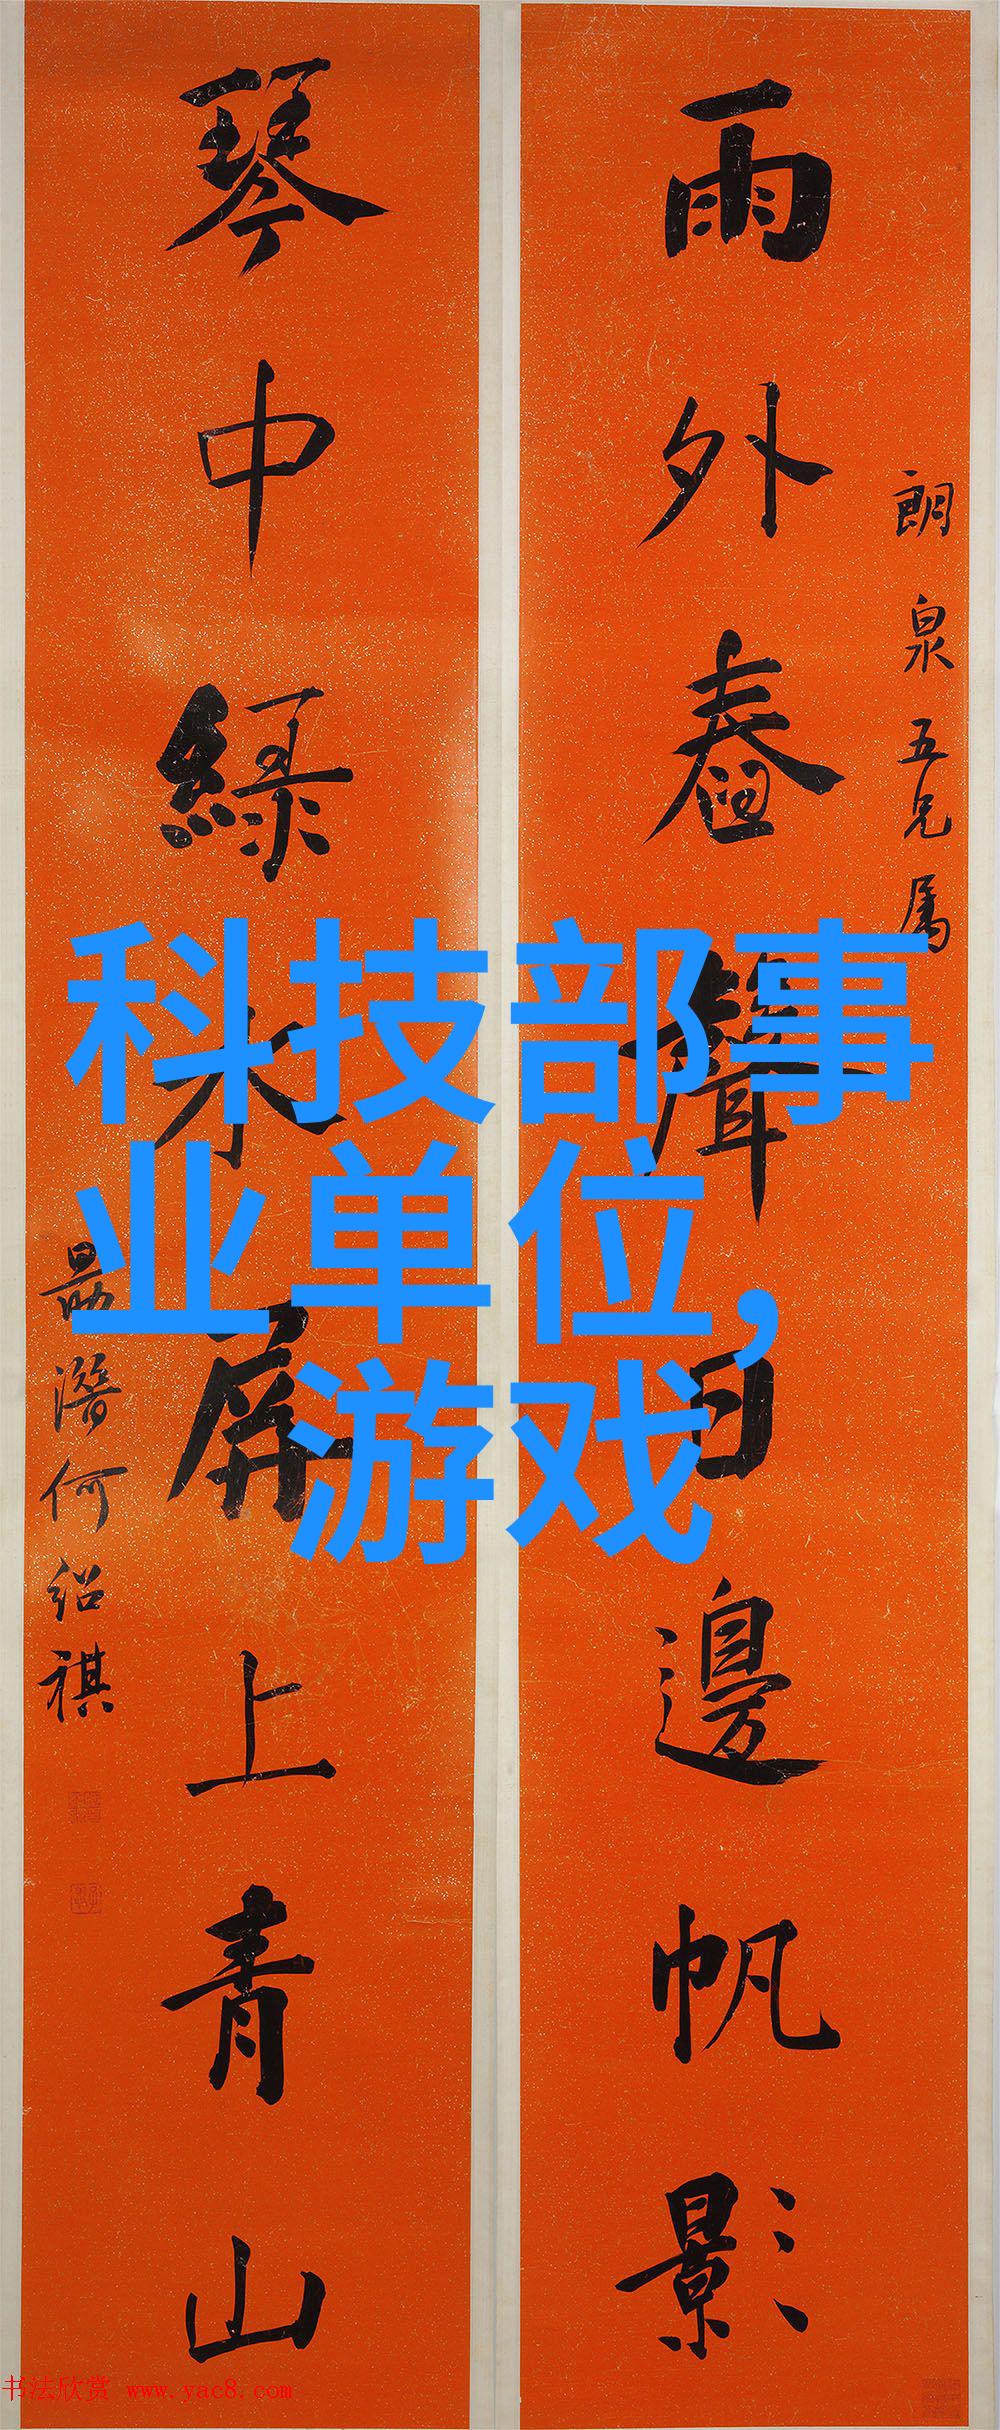 雨外舂聲日邊帆影
朗泉五兄属
琴中綠水屏上青山
勗潛何紹祺
科技部事
业单位,
游戏
书法欣赏 www.yac8.com